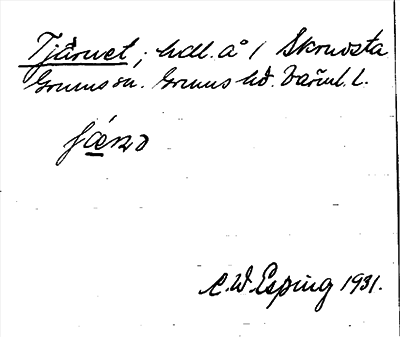 Tjärnet; hdl. å 1 Skruvsta
Grums sn. Grums hd. Värml. l.
C. W. Esping 1931.